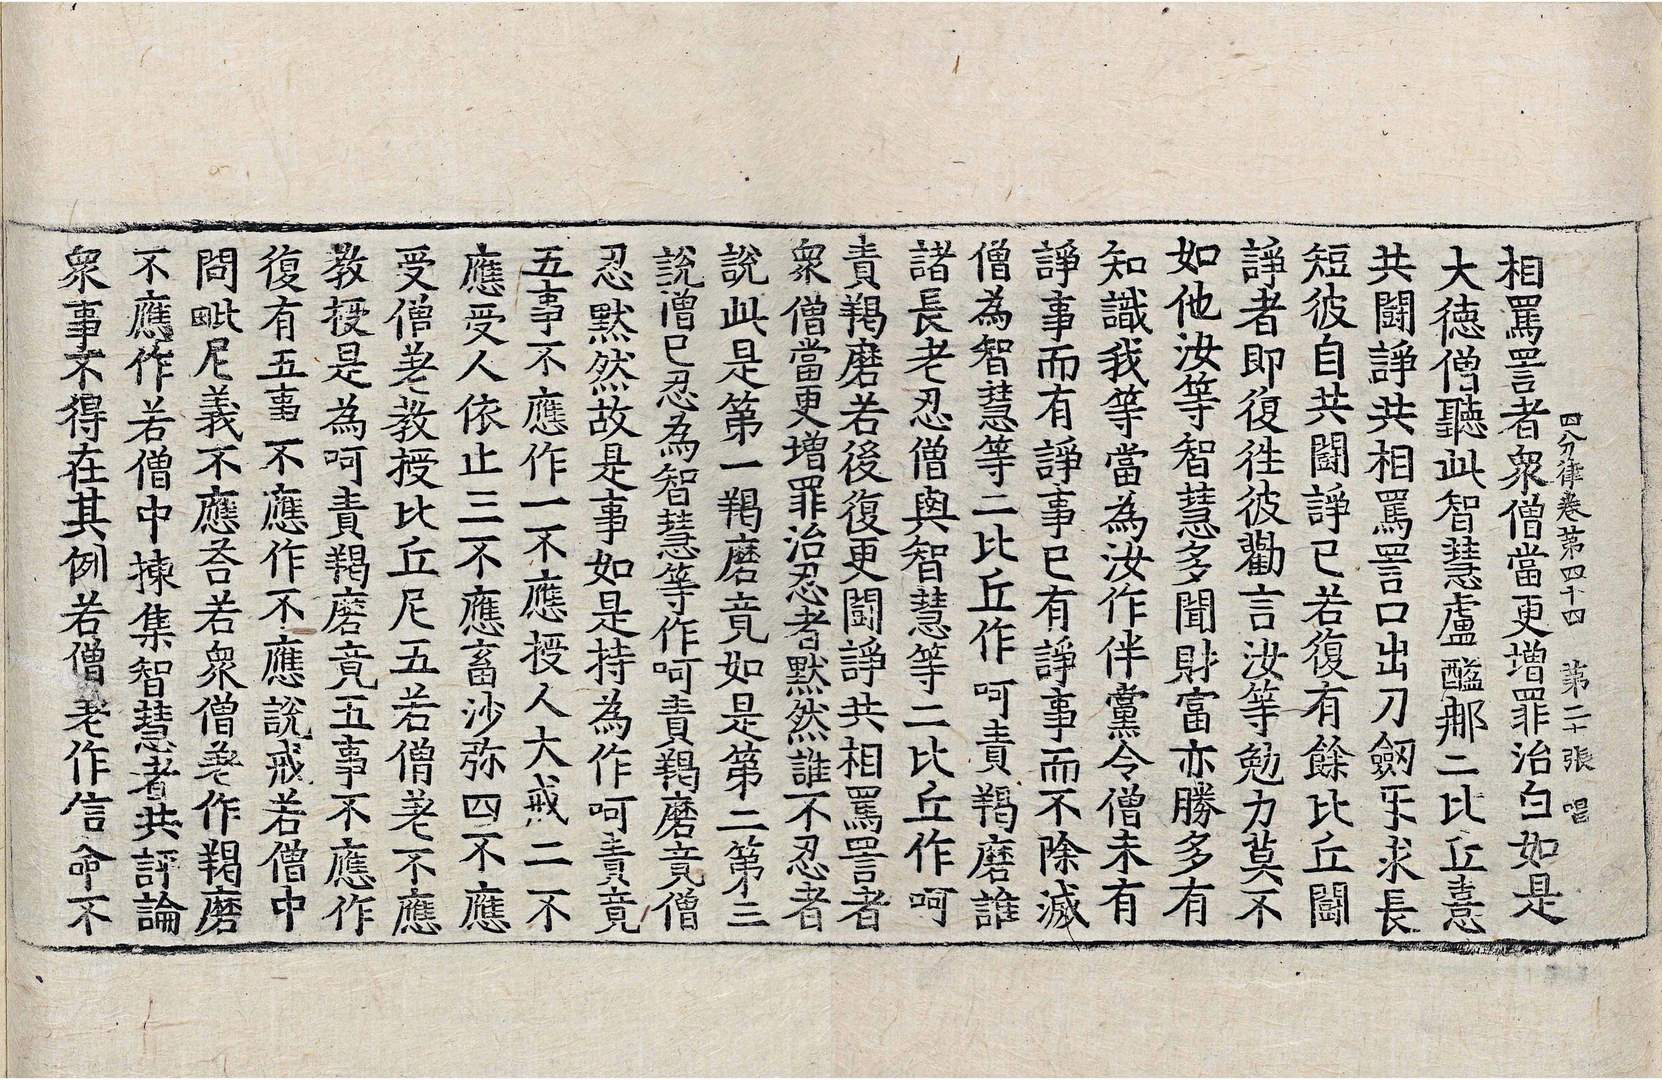 四分律卷第四十四 第二十張 唱
相罵詈者衆僧當更增罪治白如是
大德僧聽此智慧盧醯那二比丘憙
共鬪諍共相罵詈口出刀劔乐求長
短彼自共鬪諍已若復有餘比丘鬪
諍者即復往彼勸言汝等勉力莫不
如他汝等智慧多聞財富亦勝多有
知識我等當為汝作伴黨令僧未有
諍事而有諍事已有諍事而不除滅
僧為智慧等二比丘作呵責羯磨誰
諸長老忍僧與智慧等二比丘作呵
責羯磨若後復更鬪諍共相罵詈者
衆僧當更增罪治忍者默然誰不忍者
說此是第一羯磨竟如是第二第三
說僧已忍為智慧等作呵責羯磨竟僧
忍默然故是事如是持為作呵責竟
五事不應作一不應授人大戒二不
應受人依止三不應畜沙弥四不應
受僧差教授比丘尼五若僧差不應
教授是為呵責羯磨竟五事不應作
復有五事不應作不應說戒若僧中
問毗尼義不應荅若衆僧差作羯磨
不應作若僧中揀集智慧者共評論
衆事不得在其例若僧差作信命不